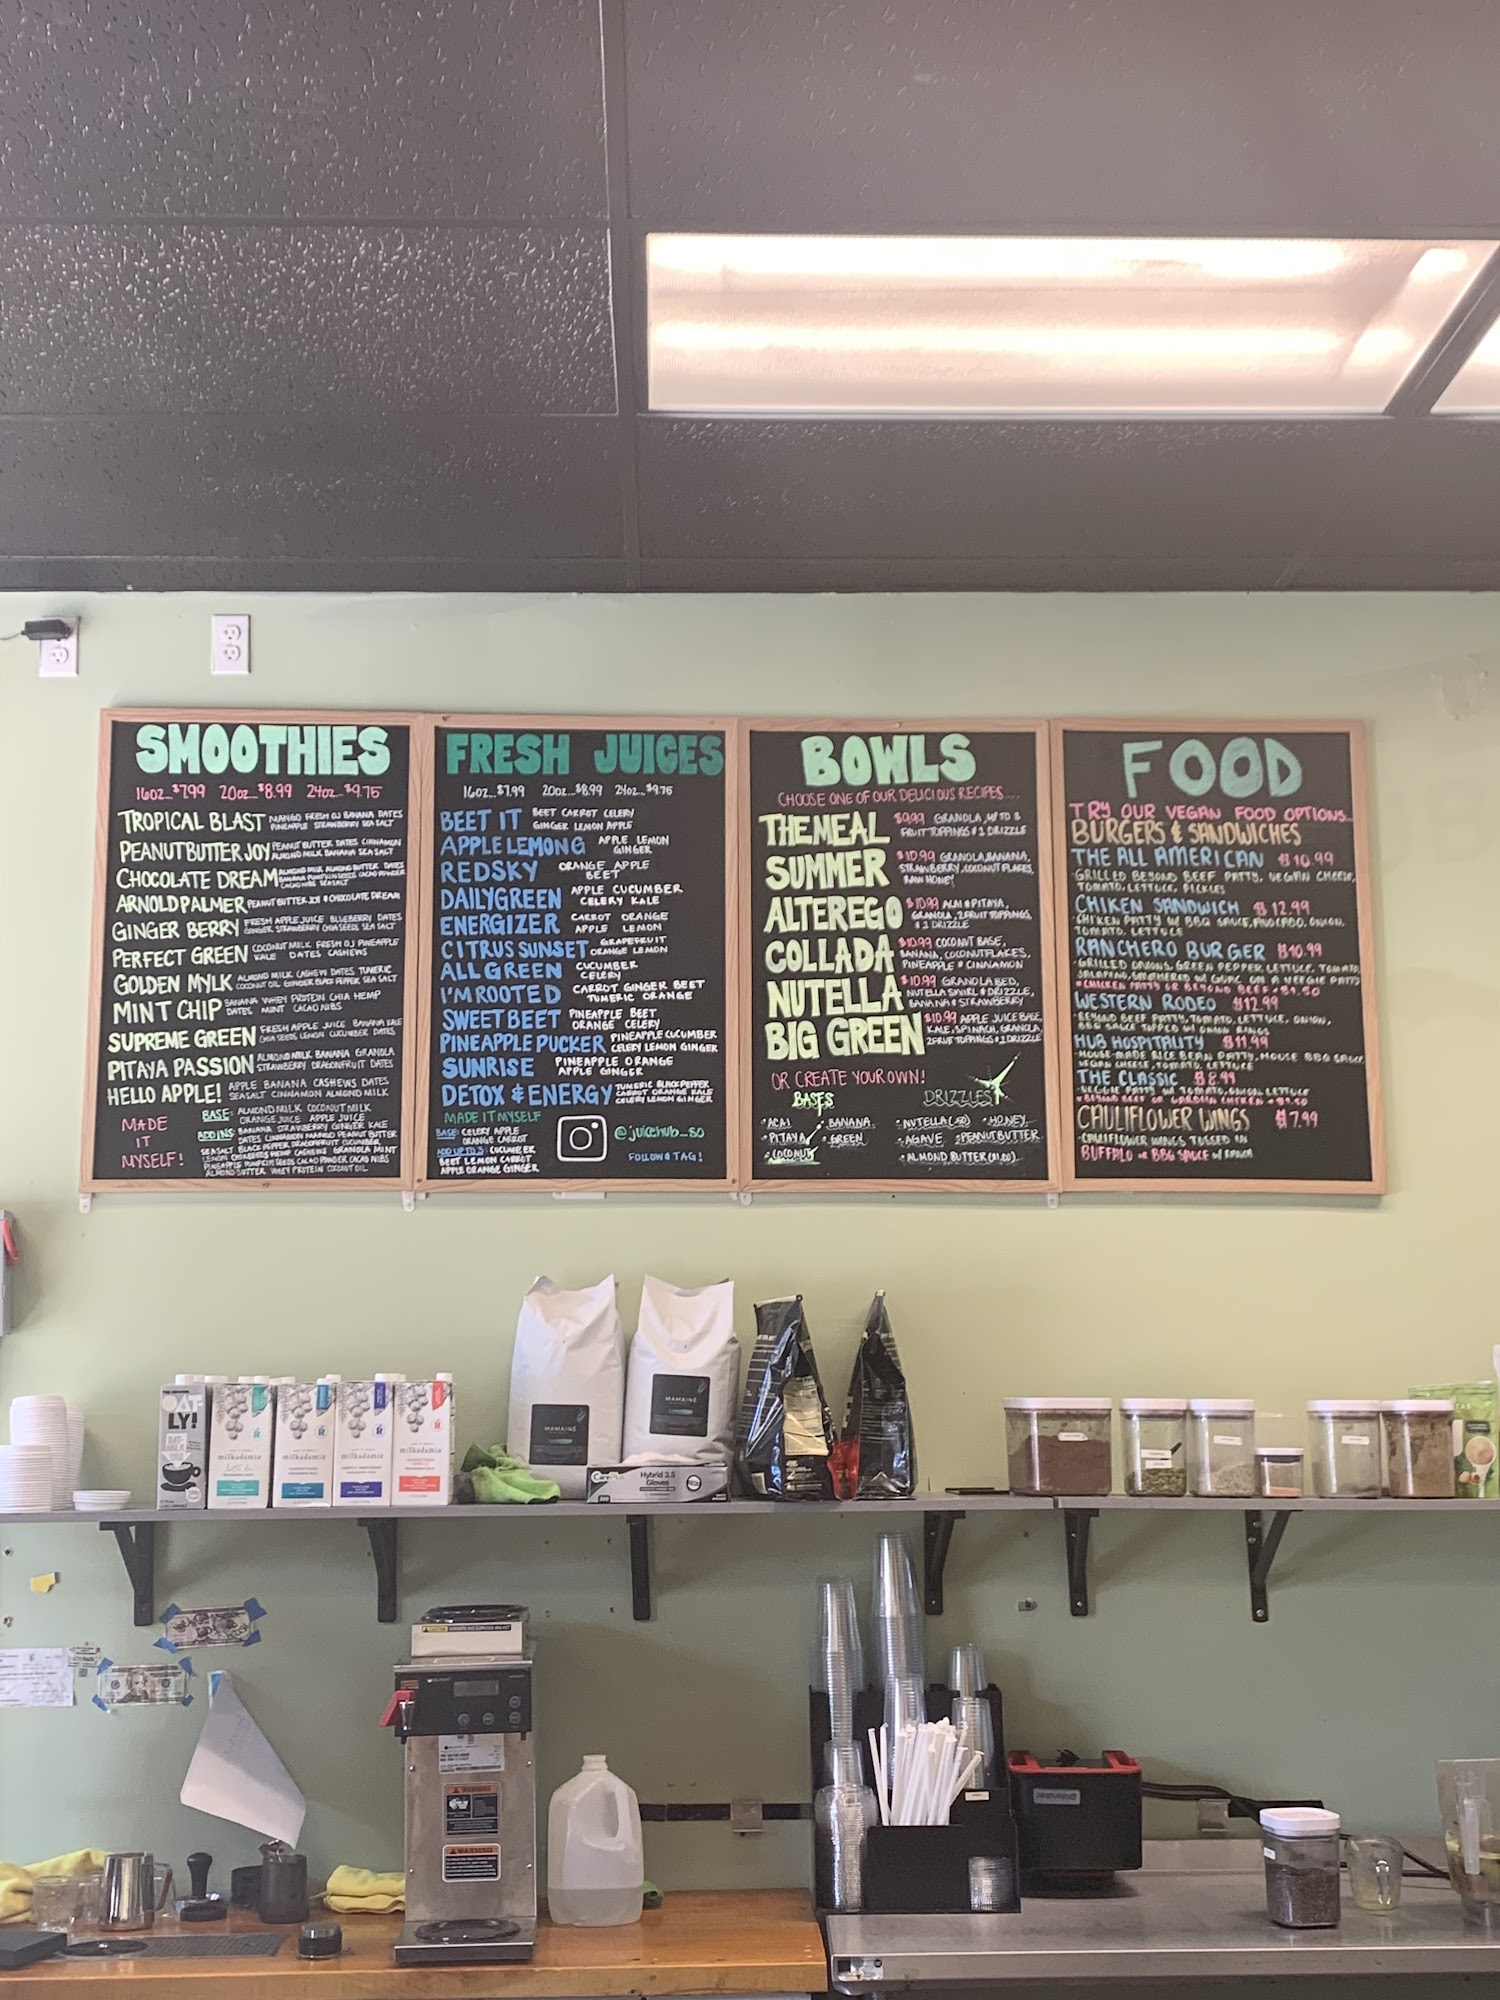 SMOOTHIES
16oz...$7.99 20oz...$8.99 24oz...$9.75
TROPICAL BLAST MANGO FRESH OJ BANANA DATES
PINEAPPLE STRAWBERRY SEA SALT
PEANUT BUTTER JOY PEANUT BUTTER DATES CINNAMON
ALMOND MILK BANANA SEA SALT
CHOCOLATE DREAM ALMOND MILK ALMOND BUTTER DATES
BANANA PUMPKIN SEEDS CACAO POWDER
CACAO NIBS SEA SALT
ARNOLD PALMER PEANUT BUTTER JOY & CHOCOLATE DREAM
GINGER BERRY FRESH APPLE JUICE BLUEBERRY DATES
GINGER STRAWBERRY CHIA SEEDS SEA SALT
PERFECT GREEN COCONUT MILK FRESH OJ PINEAPPLE
KALE DATES CASHEWS
GOLDEN MYLK ALMOND MILK CASHEW DATES TUMERIC
COCONUT OIL GINGER BLACK PEPPER SEA SALT
MINT CHIP BANANA WHEY PROTEIN CHIA HEMP
DATES MINT CACAO NIBS
SUPREME GREEN FRESH APPLE JUICE BANANA KALE
CHIA SEEDS LEMON CUCUMBER DATES
PITAYA PASSION ALMOND MILK BANANA GRANOLA
STRAWBERRY DRAGONFRUIT DATES
HELLO APPLE! APPLE BANANA CASHEWS DATES
SEASALT CINNAMON ALMOND MILK
MADE
IT
MYSELF!
BASE: ALMOND MILK COCONUT MILK
ORANGE JUICE APPLE JUICE
ADD INS: BANANA STRAWBERRY GINGER KALE
DATES CINNAMON MANGO PEANUT BUTTER
SEASALT BLACK PEPPER DRAGONFRUIT CUCUMBER
LEMON CHIA SEEDS HEMP CASHEWS GRANOLA MINT
PINEAPPLE PUMPKIN SEEDS CACAO POWDER CACAO NIBS
ALMOND BUTTER WHEY PROTEIN COCONUT OIL
FRESH JUICES
16oz...$7.99 20oz...$8.99 24oz...$9.75
BEET IT BEET CARROT CELERY
GINGER LEMON APPLE
APPLE LEMON G APPLE LEMON
GINGER
RED SKY ORANGE APPLE
BEET
DAILY GREEN APPLE CUCUMBER
CELERY KALE
ENERGIZER CARROT ORANGE
APPLE LEMON
CITRUS SUNSET GRAPEFRUIT
ORANGE LEMON
ALL GREEN CUCUMBER
CELERY
I'M ROOTED CARROT GINGER BEET
TUMERIC ORANGE
SWEET BEET PINEAPPLE BEET
ORANGE CELERY
PINEAPPLE PUCKER PINEAPPLE CUCUMBER
CELERY LEMON GINGER
SUNRISE PINEAPPLE ORANGE
APPLE GINGER
DETOX & ENERGY TUMERIC BLACK PEPPER
CARROT ORANGE KALE
CELERY LEMON GINGER
MADE IT MYSELF
BASE: CELERY APPLE
ORANGE CARROT
ADD UP TO 3: CUCUMBER
BEET LEMON CARROT
APPLE ORANGE GINGER
@juicehub_so
FOLLOW & TAG!
BOWLS
CHOOSE ONE OF OUR DELICIOUS RECIPES....
THE MEAL $9.99 GRANOLA, UP TO 3
FRUIT TOPPINGS & 1 DRIZZLE
SUMMER $10.99 GRANOLA, BANANA,
STRAWBERRY, COCONUT FLAKES,
RAW HONEY
ALTER EGO $10.99 ACAI & PITAYA,
GRANOLA, 2 FRUIT TOPPINGS,
& 1 DRIZZLE
COLLADA $10.99 COCONUT BASE,
BANANA, COCONUT FLAKES,
PINEAPPLE & CINNAMON
NUTELLA $10.99 GRANOLA BED,
NUTELLA SWIRL & DRIZZLE,
BANANA & STRAWBERRY
BIG GREEN $10.99 APPLE JUICE BASE,
KALE, SPINACH, GRANOLA,
2 FRUIT TOPPINGS & 1 DRIZZLE
OR CREATE YOUR OWN!
BASES
• ACAI • BANANA
• PITAYA • GREEN
• COCONUT
DRIZZLES
• NUTELLA (.50) • HONEY
• AGAVE • PEANUT BUTTER
• ALMOND BUTTER ($1.00)
FOOD
TRY OUR VEGAN FOOD OPTIONS...
BURGERS & SANDWICHES
THE ALL AMERICAN $10.99
GRILLED BEYOND BEEF PATTY, VEGAN CHEESE,
TOMATO, LETTUCE, PICKLES
CHIKEN SANDWICH $12.99
CHI'KEN PATTY W BBQ SAUCE, AVOCADO, ONION,
TOMATO, LETTUCE
RANCHERO BURGER $10.99
GRILLED ONIONS, GREEN PEPPER, LETTUCE, TOMATO,
JALAPENO, SMOTHERED W GUAC ON A VEGGIE PATTY
*CHICKEN PATTY OR BEYOND BEEF +$1.50
WESTERN RODEO $12.99
BEYOND BEEF PATTY, TOMATO, LETTUCE, ONION,
BBQ SAUCE TOPPED W ONION RINGS
HUB HOSPITALITY $11.99
HOUSE-MADE RICE BEAN PATTY, HOUSE BBQ SAUCE
VEGAN CHEESE, TOMATO, LETTUCE
THE CLASSIC $8.99
VEGGIE PATTY W TOMATO, ONION LETTUCE
*BEYOND BEEF OR GARDEIN CHIKEN +$1.50
CAULIFLOWER WINGS $7.99
CAULIFLOWER WINGS TOSSED IN
BUFFALO OR BBQ SAUCE W RANCH
OAT-
LY!
OAT-
MILK
milkadamia
milkadamia
milkadamia
milkadamia
MAMAINÉ
MAMAINÉ
Hybrid 3.5
Gloves
WARNING
WARNING